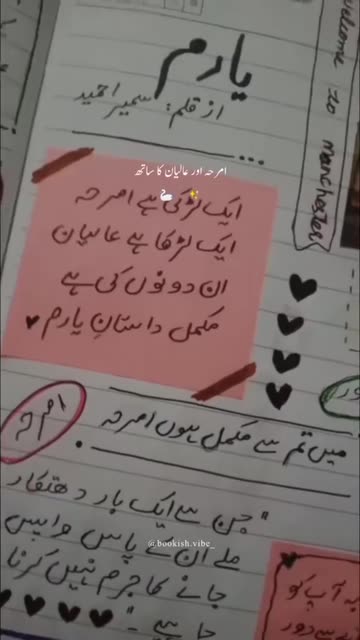 welcome to manchester
یارم
از قلم: سمیرا حمید
امرحہ اور عالیان کا ساتھ
ایک لڑکی ہے امرحہ
ایک لڑکا ہے عالیان
ان دونوں کی ہے
مکمل داستانِ یارم
امرحہ
میں تم سے مکمل ہوں امرحہ
"جن سے ایک بار دھتکار
ملے ان کے پاس واپس
جانے کا جرم نہیں کرنا
چاہیے۔"
@bookish.vibe_
آپ کو
دور